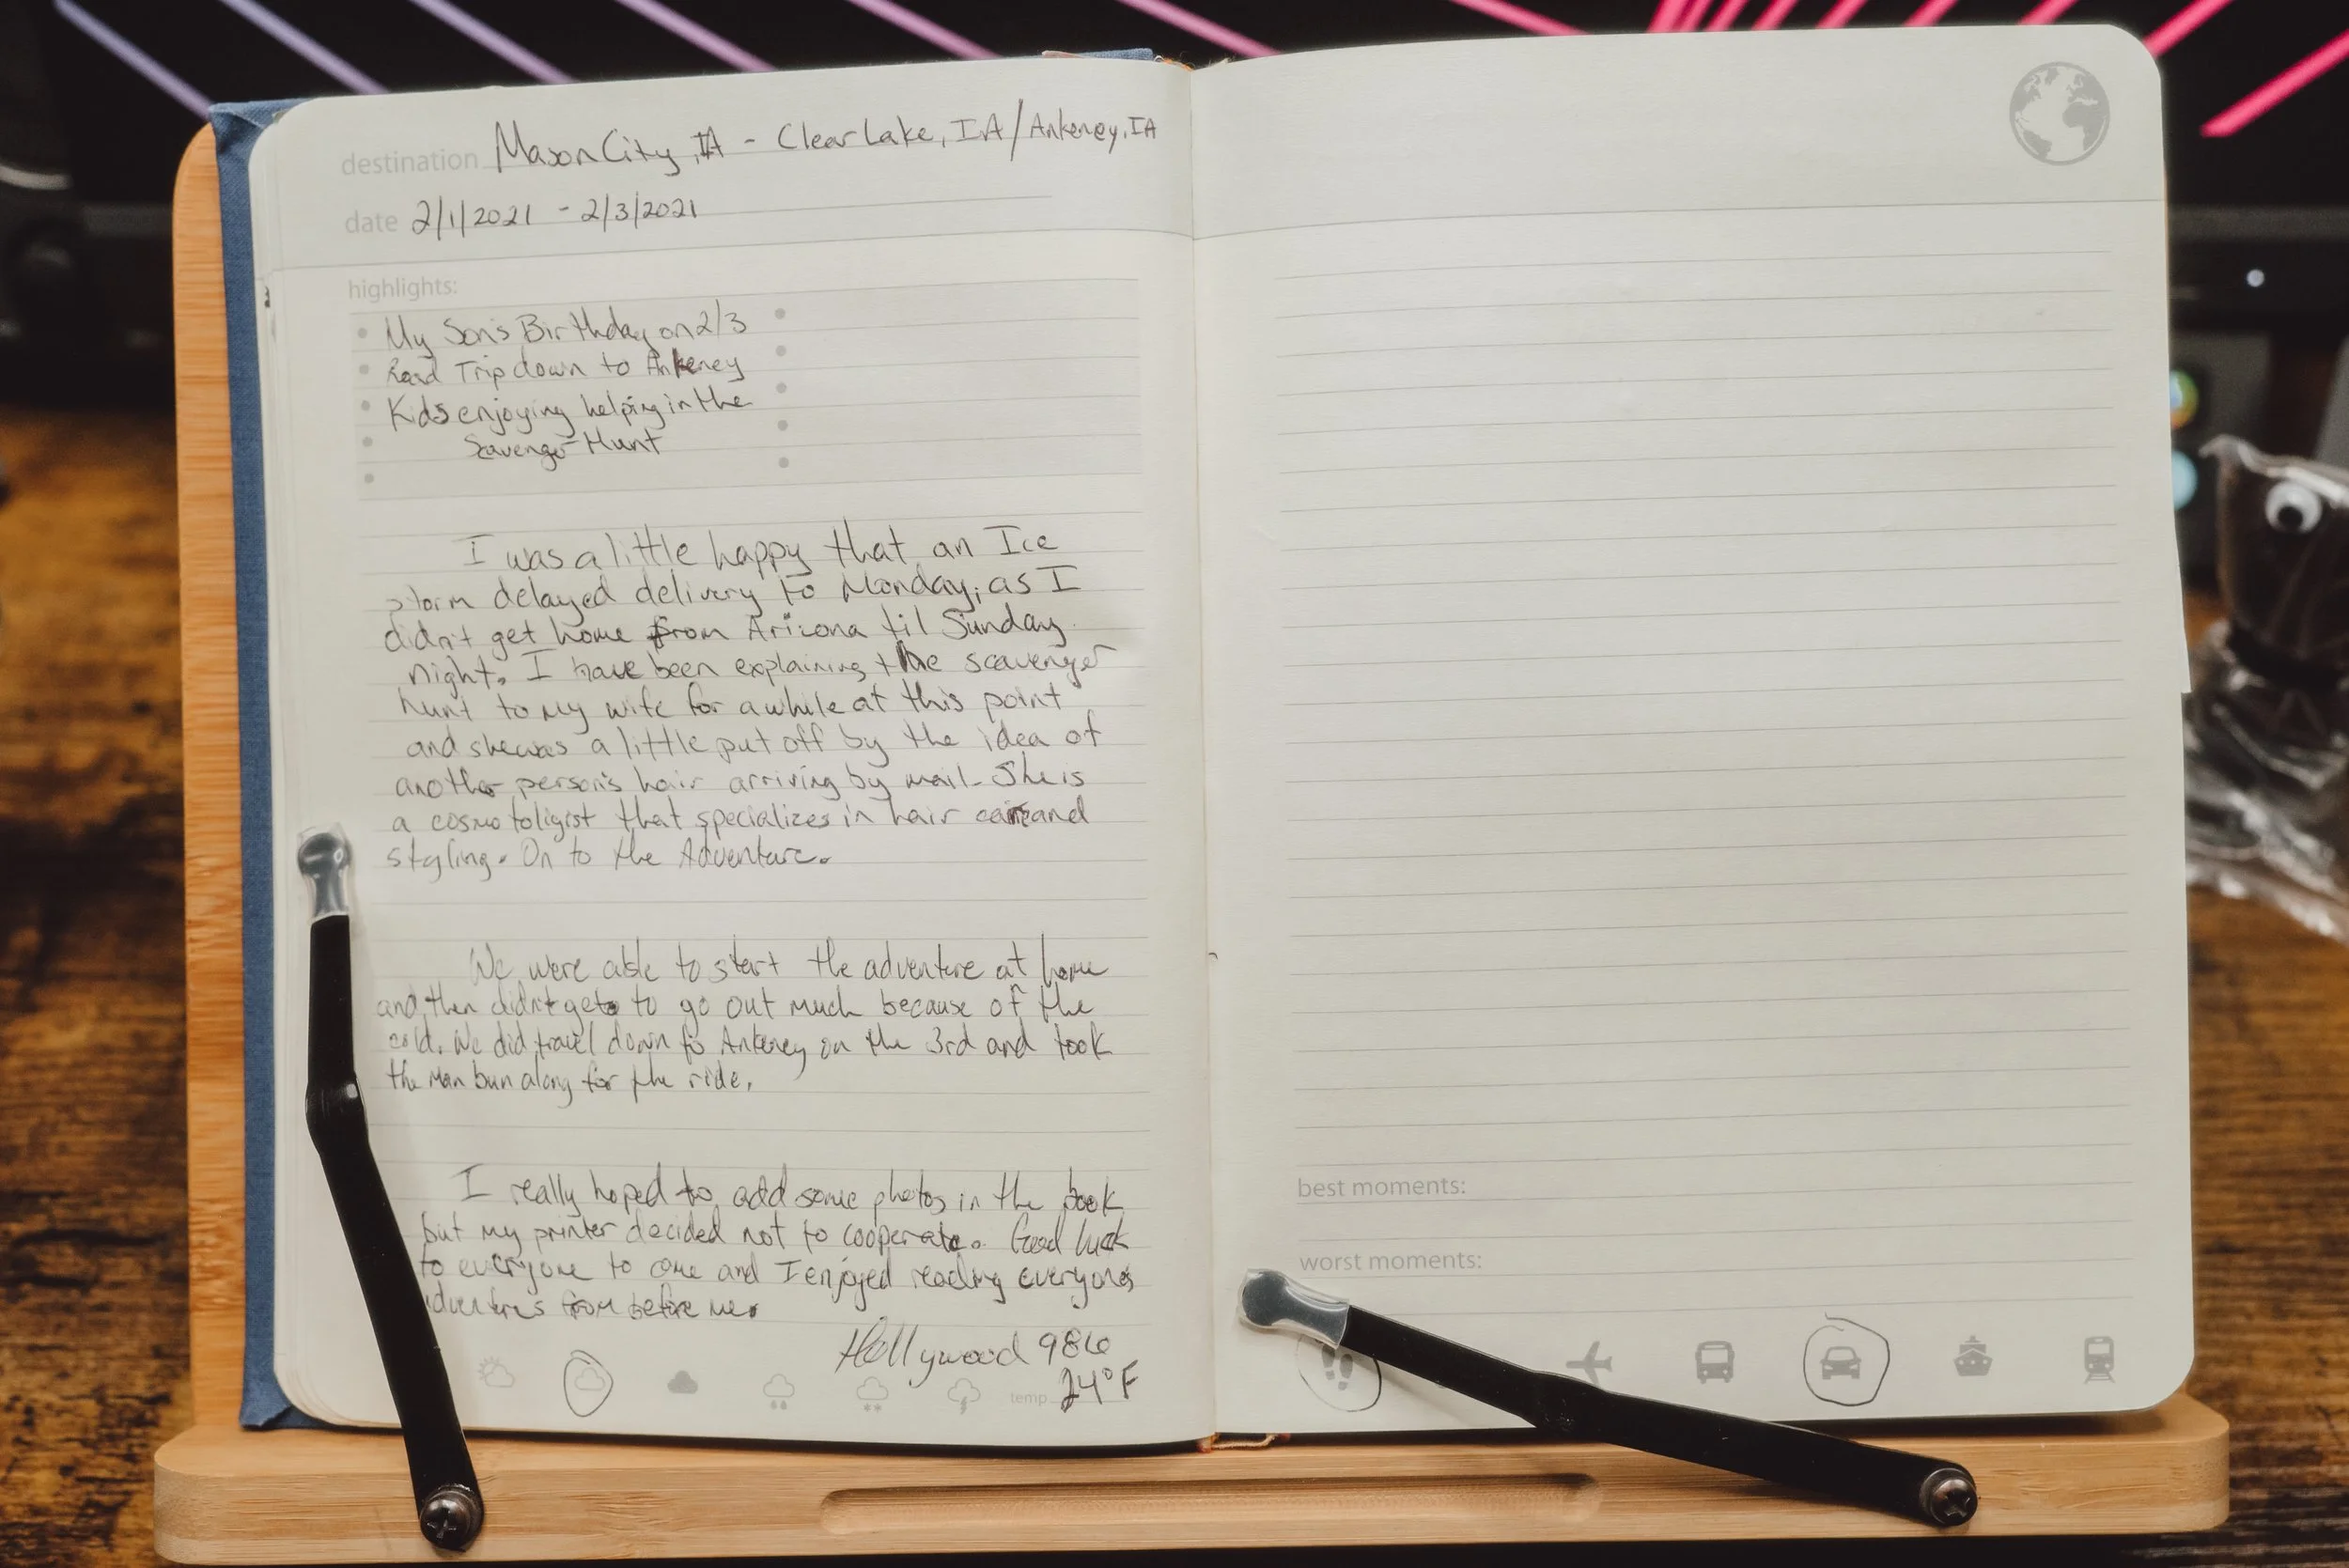 destination Mason City, IA - Clear Lake, IA / Ankeney, IA
date 2/1/2021 - 2/3/2021
highlights:
My Son's Birthday on 2/3
Road Trip down to Ankeney
Kids enjoying helping in the
Scavenger Hunt
I was a little happy that an Ice
storm delayed delivery to Monday, as I
didn't get home from Arizona til Sunday
night. I have been explaining the scavenger
hunt to my wife for awhile at this point
and she was a little put off by the idea of
another person's hair arriving by mail. She is
a cosmotoligist that specializes in hair care and
styling. On to the Adventure.
We were able to start the adventure at home
and then didn't get to go out much because of the
cold. We did travel down to Ankeney on the 3rd and took
the man bun along for the ride.
I really hoped to add some photos in the book
but my printer decided not to cooperate. Good luck
to everyone to come and I enjoyed reading everyones
adventures from before me.
Hollywood 986
temp 24°F
best moments:
worst moments: